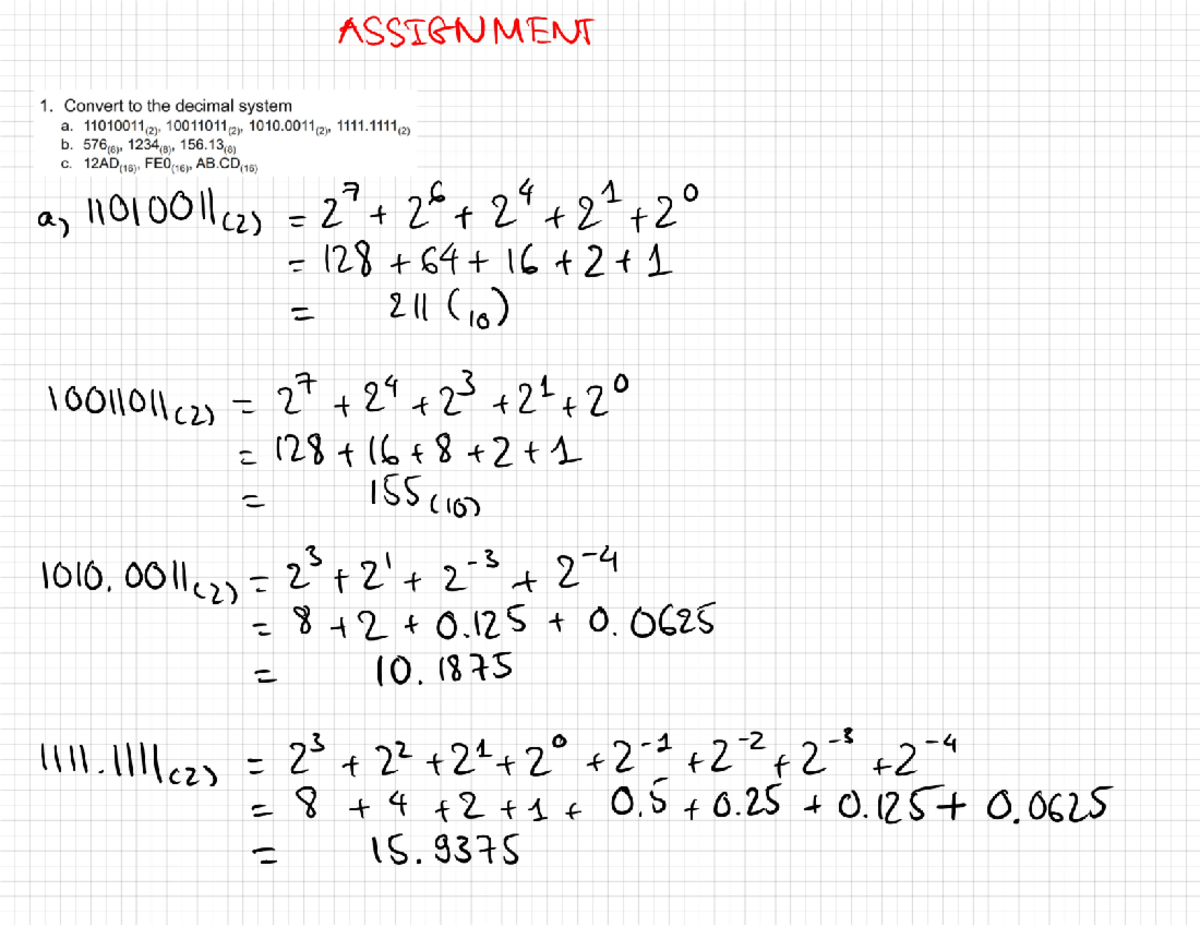 ASSIGNMENT
1. Convert to the decimal system
a. 11010011(2), 10011011(2), 1010.0011(2), 1111.1111(2)
b. 576(8), 1234(8), 156.13(8)
c. 12AD(16), FE0(16), AB.CD(16)
a, 11010011(2) = 2^7 + 2^6 + 2^4 + 2^1 + 2^0
= 128 + 64 + 16 + 2 + 1
= 211 (10)
10011011(2) = 2^7 + 2^4 + 2^3 + 2^1 + 2^0
= 128 + 16 + 8 + 2 + 1
= 155(10)
1010.0011(2) = 2^3 + 2^1 + 2^-3 + 2^-4
= 8 + 2 + 0.125 + 0.0625
= 10.1875
1111.1111(2) = 2^3 + 2^2 + 2^1 + 2^0 + 2^-1 + 2^-2 + 2^-3 + 2^-4
= 8 + 4 + 2 + 1 + 0.5 + 0.25 + 0.125 + 0.0625
= 15.9375